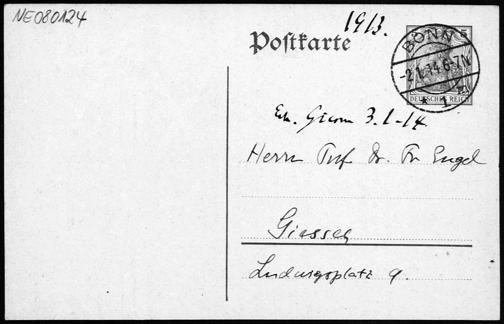 NE080124
1913.
Postkarte
5
BONN
-2.1.14.6-7N.
* 1
DEUTSCHES REICH
3.1.-14.
Herrn Prof. Dr. Fr. Engel
Giessen
Ludwigsplatz 9.